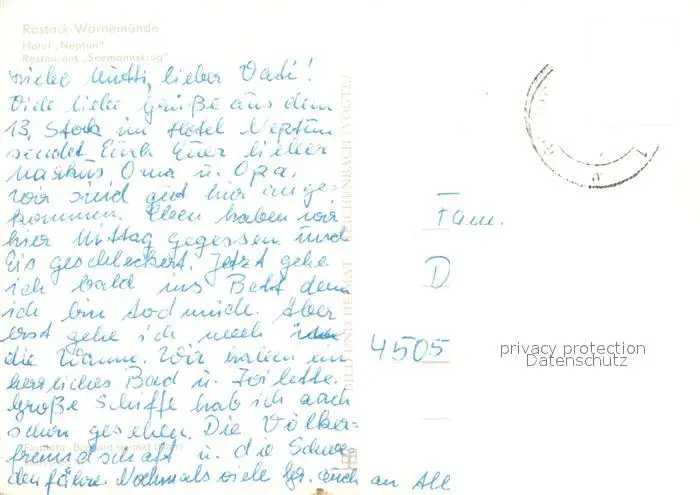 Rostock-Warnemünde
Hotel „Neptun"
Restaurant „Seemannskrug"
Liebe Mutti, lieber Vati!
Viele liebe Grüße aus dem
13. Stock im Hotel Neptun
sendet Euch Euer lieber
Markus Oma u. Opa.
Wir sind gut hier ange-
kommen. Eben haben wir
hier Mittag gegessen und
Eis geschleckert. Jetzt gehe
ich bald ins Bett denn
ich bin todmüde. Aber
erst gehe ich noch in
die Wanne. Wir haben ein
herrliches Bad u. Toilette.
Große Schiffe hab ich auch
schon gesehen. Die Völker-
freundschaft u. die Schwe-
denfähre. Nochmals viele Gr. auch an All
BILD UND HEIMAT REICHENBACH (VOGTL)
Fam.
D
4505
privacy protection
Datenschutz